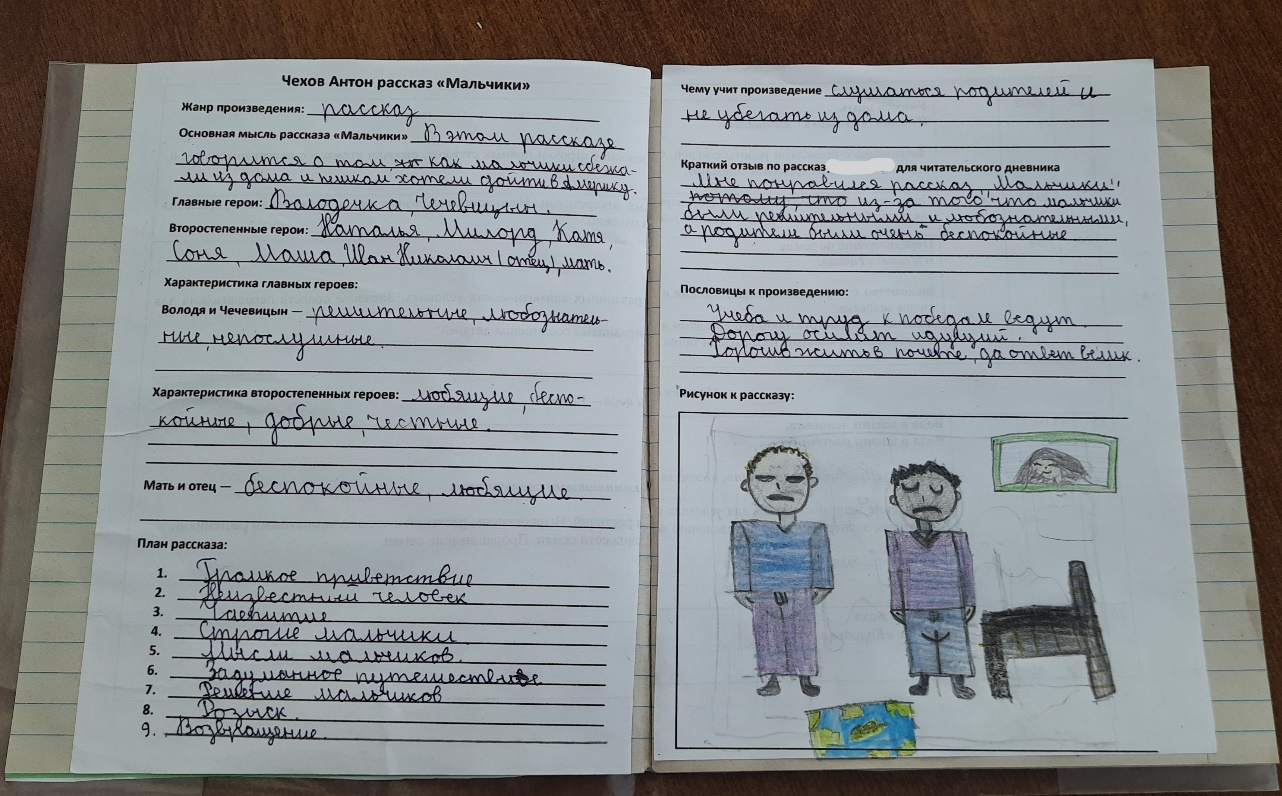 Чехов Антон рассказ «Мальчики»
Жанр произведения: рассказ
Основная мысль рассказа «Мальчики» В этом рассказе
говорится о том как мальчики сбежа-
ли из дома и пешком хотели дойти в Америку.
Главные герои: Володечка, Чечевицын.
Второстепенные герои: Наталья, Милорд, Катя,
Соня, Маша, Иван Николаич (отец), мать.
Характеристика главных героев:
Володя и Чечевицын – решительные любознатель-
ные, непослушные.
Характеристика второстепенных героев: любящие, беспо-
койные, добрые, честные.
Мать и отец – беспокойные, любящие
План рассказа:
1. Громкое приветствие
2. Неизвестный человек
3. Чаепитие
4. Строгие мальчики
5. Мысли мальчиков.
6. Задуманное путешествие
7. Решение мальчиков
8. Розыск.
9. Возвращение.
Чему учит произведение слушаться родителей и
не убегать из дома.
Краткий отзыв по рассказ для читательского дневника
Мне понравился рассказ „Мальчики"
потому, что из-за того что мальчики
были решительными и любознательными,
а родители были очень беспокойные
Пословицы к произведению:
Учеба и труд к победам ведут.
Дорогу осилит идущий.
жить в почёте, да ответ велик.
Рисунок к рассказу: